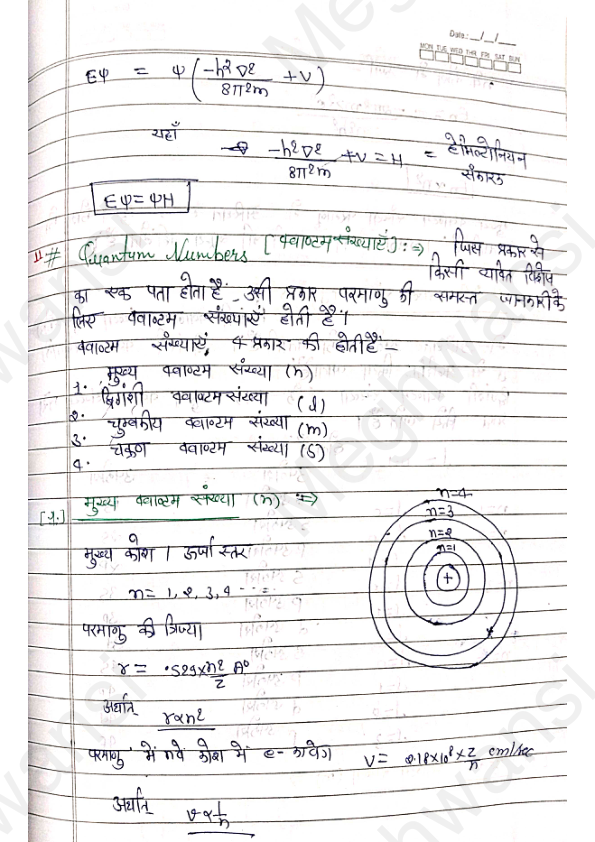 Date: __/__/__
MON TUE WED THR FRI SAT SUN
Eψ = ψ ( -h²∇² / 8π²m + V )
यहाँ
→ -h²∇² / 8π²m + V = H = हैमिल्टोनियन
संकारक
Eψ = ψH
# Quantum Numbers [क्वाण्टम संख्याएँ] :⇒ जिस प्रकार से
किसी व्यक्ति विशेष
का एक पता होता है उसी प्रकार परमाणु की समस्त जानकारी के
लिए क्वाण्टम संख्याएँ होती हैं।
क्वाण्टम संख्याएँ 4 प्रकार की होती हैं –
1. मुख्य क्वाण्टम संख्या (n)
2. द्विगंशी क्वाण्टम संख्या (l)
3. चुम्बकीय क्वाण्टम संख्या (m)
4. चक्रण क्वाण्टम संख्या (s)
[1.] मुख्य क्वाण्टम संख्या (n) ⇒
n=4
n=3
n=2
n=1
+
मुख्य कोश / ऊर्जा स्तर
n = 1, 2, 3, 4 - - -
परमाणु की त्रिज्या
r = .529 × n²/Z A°
अर्थात् r ∝ n²
परमाणु में nवे कोश में e- का वेग V = 2.18×10⁸ × Z/n cm/sec
अर्थात् v ∝ 1/n
Meghwansi